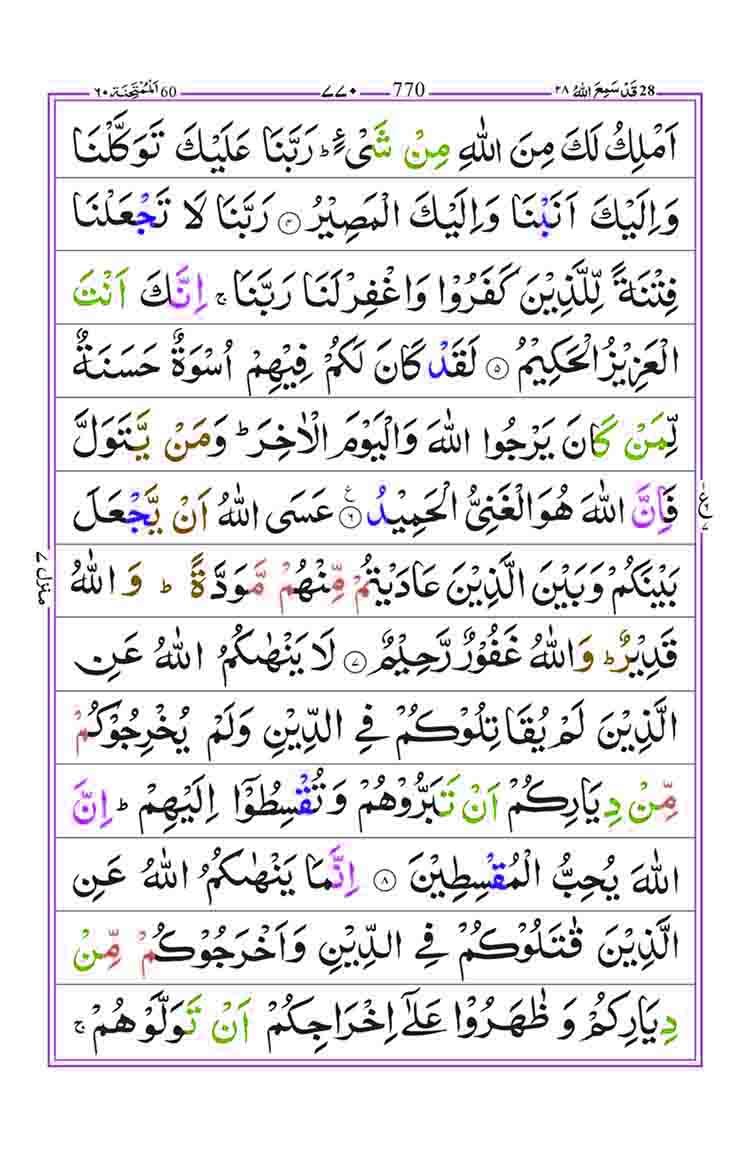 28 قَدْ سَمِعَ اللهُ ٢٨ 770 ٧٧٠ 60 اَلْمُمْتَحِنَة ٦٠
اَمْلِكُ لَكَ مِنَ اللّٰهِ مِنْ شَىْءٍ ؕ رَبَّنَا عَلَيْكَ تَوَكَّلْنَا
وَاِلَيْكَ اَنَبْنَا وَاِلَيْكَ الْمَصِيْرُ ۝۴ رَبَّنَا لَا تَجْعَلْنَا
فِتْنَةً لِّلَّذِيْنَ كَفَرُوْا وَاغْفِرْ لَنَا رَبَّنَا ۚ اِنَّكَ اَنْتَ
الْعَزِيْزُ الْحَكِيْمُ ۝۵ لَقَدْ كَانَ لَكُمْ فِيْهِمْ اُسْوَةٌ حَسَنَةٌ
لِّمَنْ كَانَ يَرْجُوا اللّٰهَ وَالْيَوْمَ الْاٰخِرَ ؕ وَمَنْ يَّتَوَلَّ
فَاِنَّ اللّٰهَ هُوَ الْغَنِىُّ الْحَمِيْدُ ۝۶ عَسَى اللّٰهُ اَنْ يَّجْعَلَ
بَيْنَكُمْ وَبَيْنَ الَّذِيْنَ عَادَيْتُمْ مِّنْهُمْ مَّوَدَّةً ؕ وَاللّٰهُ
قَدِيْرٌ ؕ وَاللّٰهُ غَفُوْرٌ رَّحِيْمٌ ۝۷ لَا يَنْهٰىكُمُ اللّٰهُ عَنِ
الَّذِيْنَ لَمْ يُقَاتِلُوْكُمْ فِى الدِّيْنِ وَلَمْ يُخْرِجُوْكُمْ
مِّنْ دِيَارِكُمْ اَنْ تَبَرُّوْهُمْ وَتُقْسِطُوْۤا اِلَيْهِمْ ؕ اِنَّ
اللّٰهَ يُحِبُّ الْمُقْسِطِيْنَ ۝۸ اِنَّمَا يَنْهٰىكُمُ اللّٰهُ عَنِ
الَّذِيْنَ قٰتَلُوْكُمْ فِى الدِّيْنِ وَاَخْرَجُوْكُمْ مِّنْ
دِيَارِكُمْ وَ ظٰهَرُوْا عَلٰٓى اِخْرَاجِكُمْ اَنْ تَوَلَّوْهُمْ ۚ
ع ٧
منزل ٧